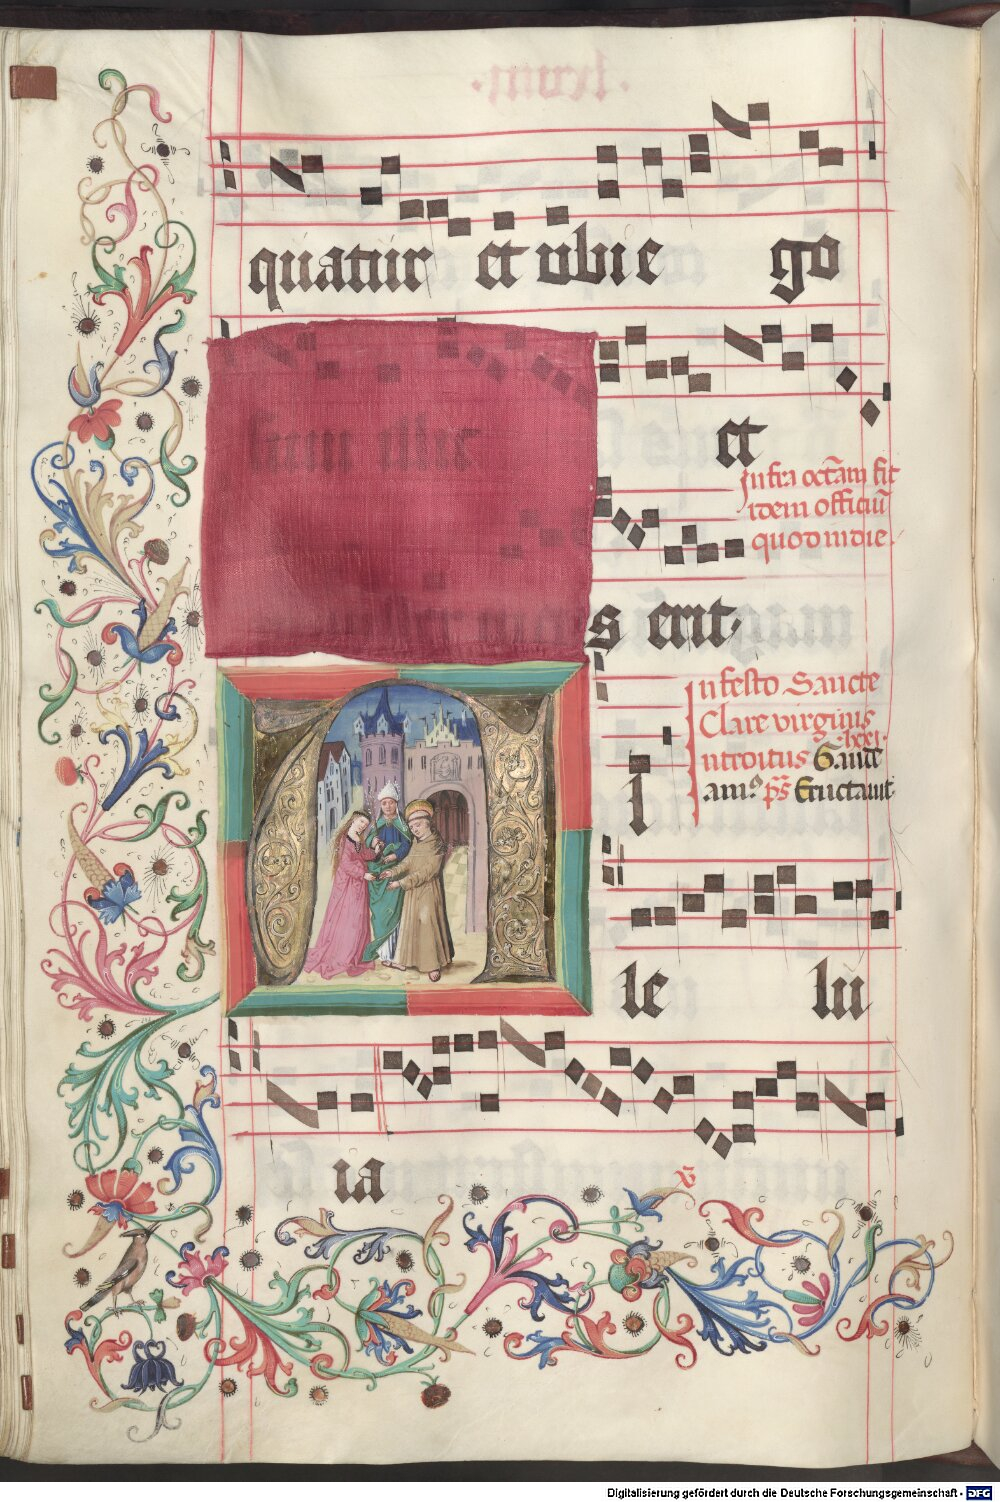 quatur et ubi e go
sum illic et
Infra octãm fit
idem officiũ
quod in die.
s erit.
In festo Sancte
Clare virginis
introitus Gaude
am⁹ p̃s Eructauit.
A l
le lu
ia ℣
Digitalisierung gefördert durch die Deutsche Forschungsgemeinschaft - DFG